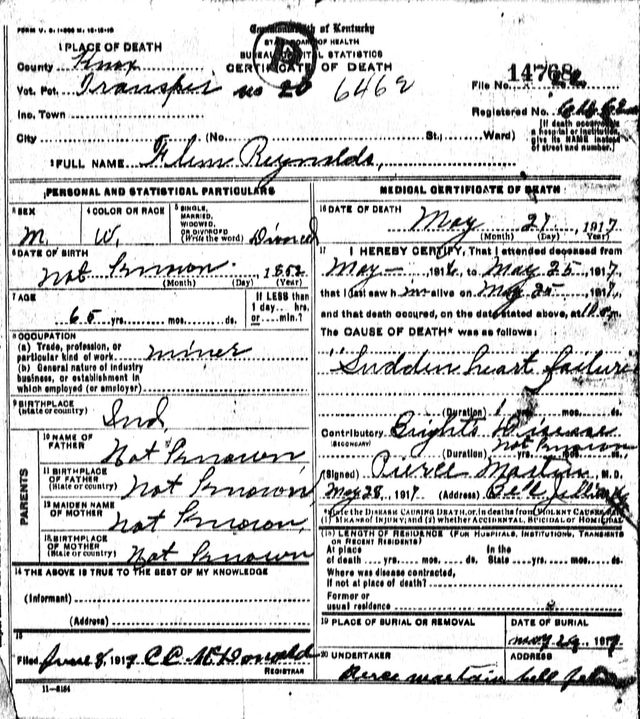 FORM V. S. 1
Commonwealth of Kentucky
STATE BOARD OF HEALTH
BUREAU OF VITAL STATISTICS
CERTIFICATE OF DEATH
1 PLACE OF DEATH
County Knox
Vot. Pct. no 20 6462
Inc. Town
City (No. St.; Ward)
File No. 14768
Registered No.
(If death occurred in a hospital or institution, give its NAME instead of street and number.)
2 FULL NAME Reynolds,
PERSONAL AND STATISTICAL PARTICULARS
3 SEX M.
4 COLOR OR RACE W.
5 SINGLE, MARRIED, WIDOWED, OR DIVORCED (Write the word) Divorced
6 DATE OF BIRTH
Not Known. 1852
(Month) (Day) (Year)
7 AGE
65 yrs. mos. ds.
If LESS than 1 day hrs. or min.?
8 OCCUPATION
(a) Trade, profession, or particular kind of work miner
(b) General nature of industry business, or establishment in which employed (or employer)
9 BIRTHPLACE (State or country) Ind
PARENTS
10 NAME OF FATHER Not Known
11 BIRTHPLACE OF FATHER (State or country) Not Known
12 MAIDEN NAME OF MOTHER Not Known,
13 BIRTHPLACE OF MOTHER (State or country) Not Known
14 THE ABOVE IS TRUE TO THE BEST OF MY KNOWLEDGE
(Informant)
(Address)
15
Filed June 8, 1917 C C McDonald
REGISTRAR
11-3184
MEDICAL CERTIFICATE OF DEATH
16 DATE OF DEATH
May 27, 1917
(Month) (Day) (Year)
17 I HEREBY CERTIFY, That I attended deceased from
May 191 to May 25, 1917,
that I last saw him alive on May 25, 1917,
and that death occurred, on the date stated above, at m.
The CAUSE OF DEATH* was as follows:
Sudden heart failure
(Duration) yrs. mos. ds.
Contributory Brights Disease
(SECONDARY) Not Known
(Duration) yrs. mos. ds.
(Signed) Pierce Martin, M.D.
May 28, 1917 (Address)
*State the DISEASE CAUSING DEATH, or, in deaths from VIOLENT CAUSES, state (1) MEANS OF INJURY; and (2) whether ACCIDENTAL, SUICIDAL or HOMICIDAL
18 LENGTH OF RESIDENCE (FOR HOSPITALS, INSTITUTIONS, TRANSIENTS OR RECENT RESIDENTS)
At place of death yrs. mos. ds. In the State yrs. mos. ds.
Where was disease contracted,
If not at place of death?
Former or usual residence
19 PLACE OF BURIAL OR REMOVAL
DATE OF BURIAL
May 29, 1917
20 UNDERTAKER
ADDRESS